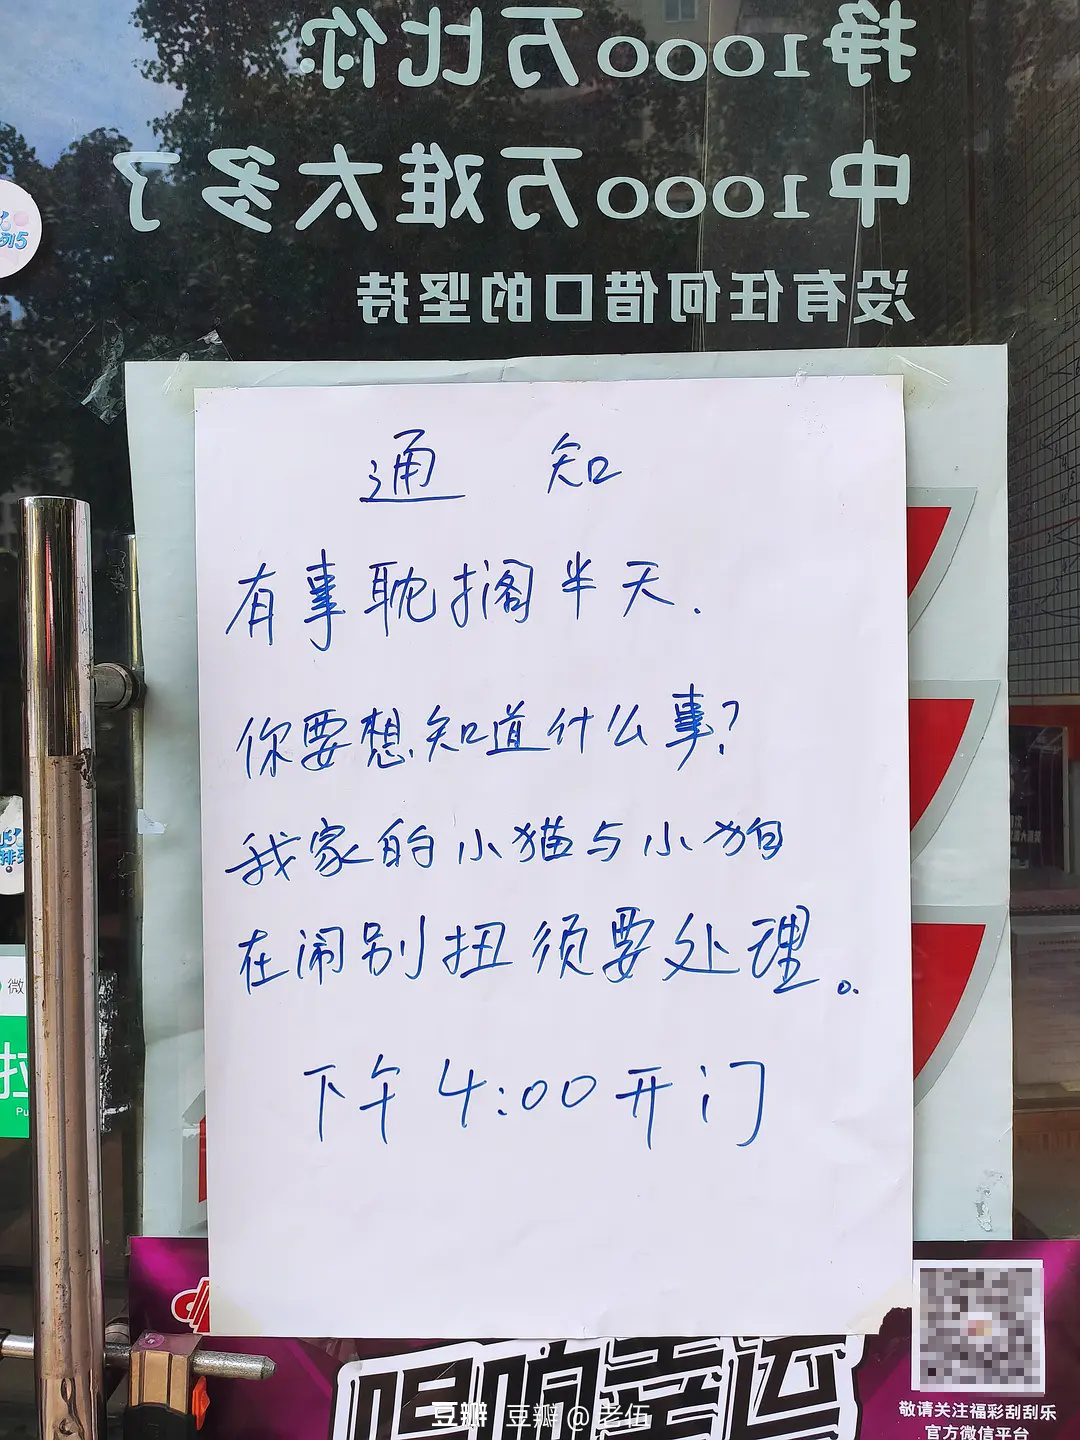 挣1000万比你
中1000万难太多了
没有任何借口的坚持
列5
通 知
有事耽搁半天.
你要想知道什么事?
我家的小猫与小狗
在闹别扭须要处理。
下午4:00开门
微
拉
Pu
唱响幸运
敬请关注福彩刮刮乐
官方微信平台
豆瓣 豆瓣@老伍